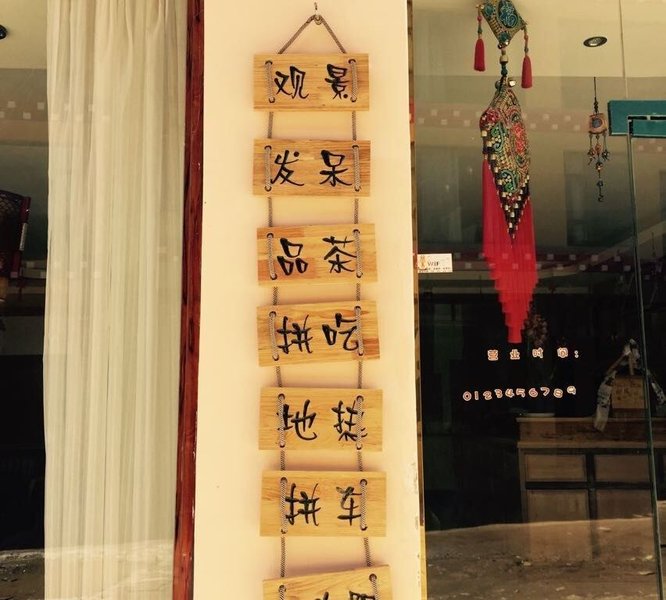 观景
发呆
品茶
拼吃
地接
拼车
营业时间:
0123456789